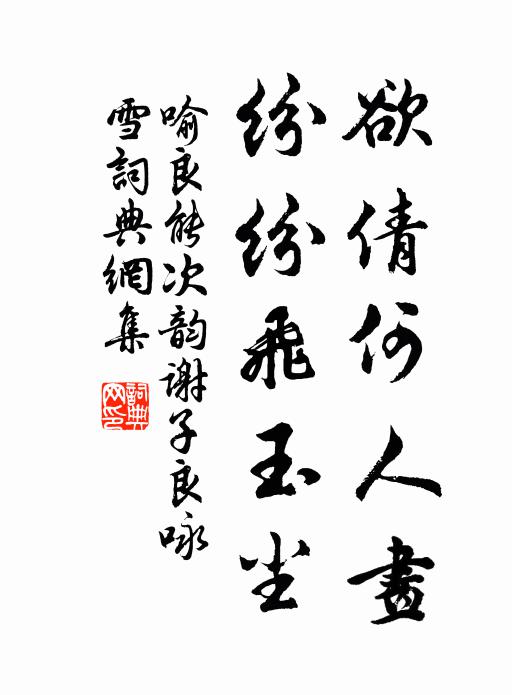 欲倩何人畫
紛紛飛玉尘
喻良能次韵謝子良咏
雪詞典網集
詞典网印